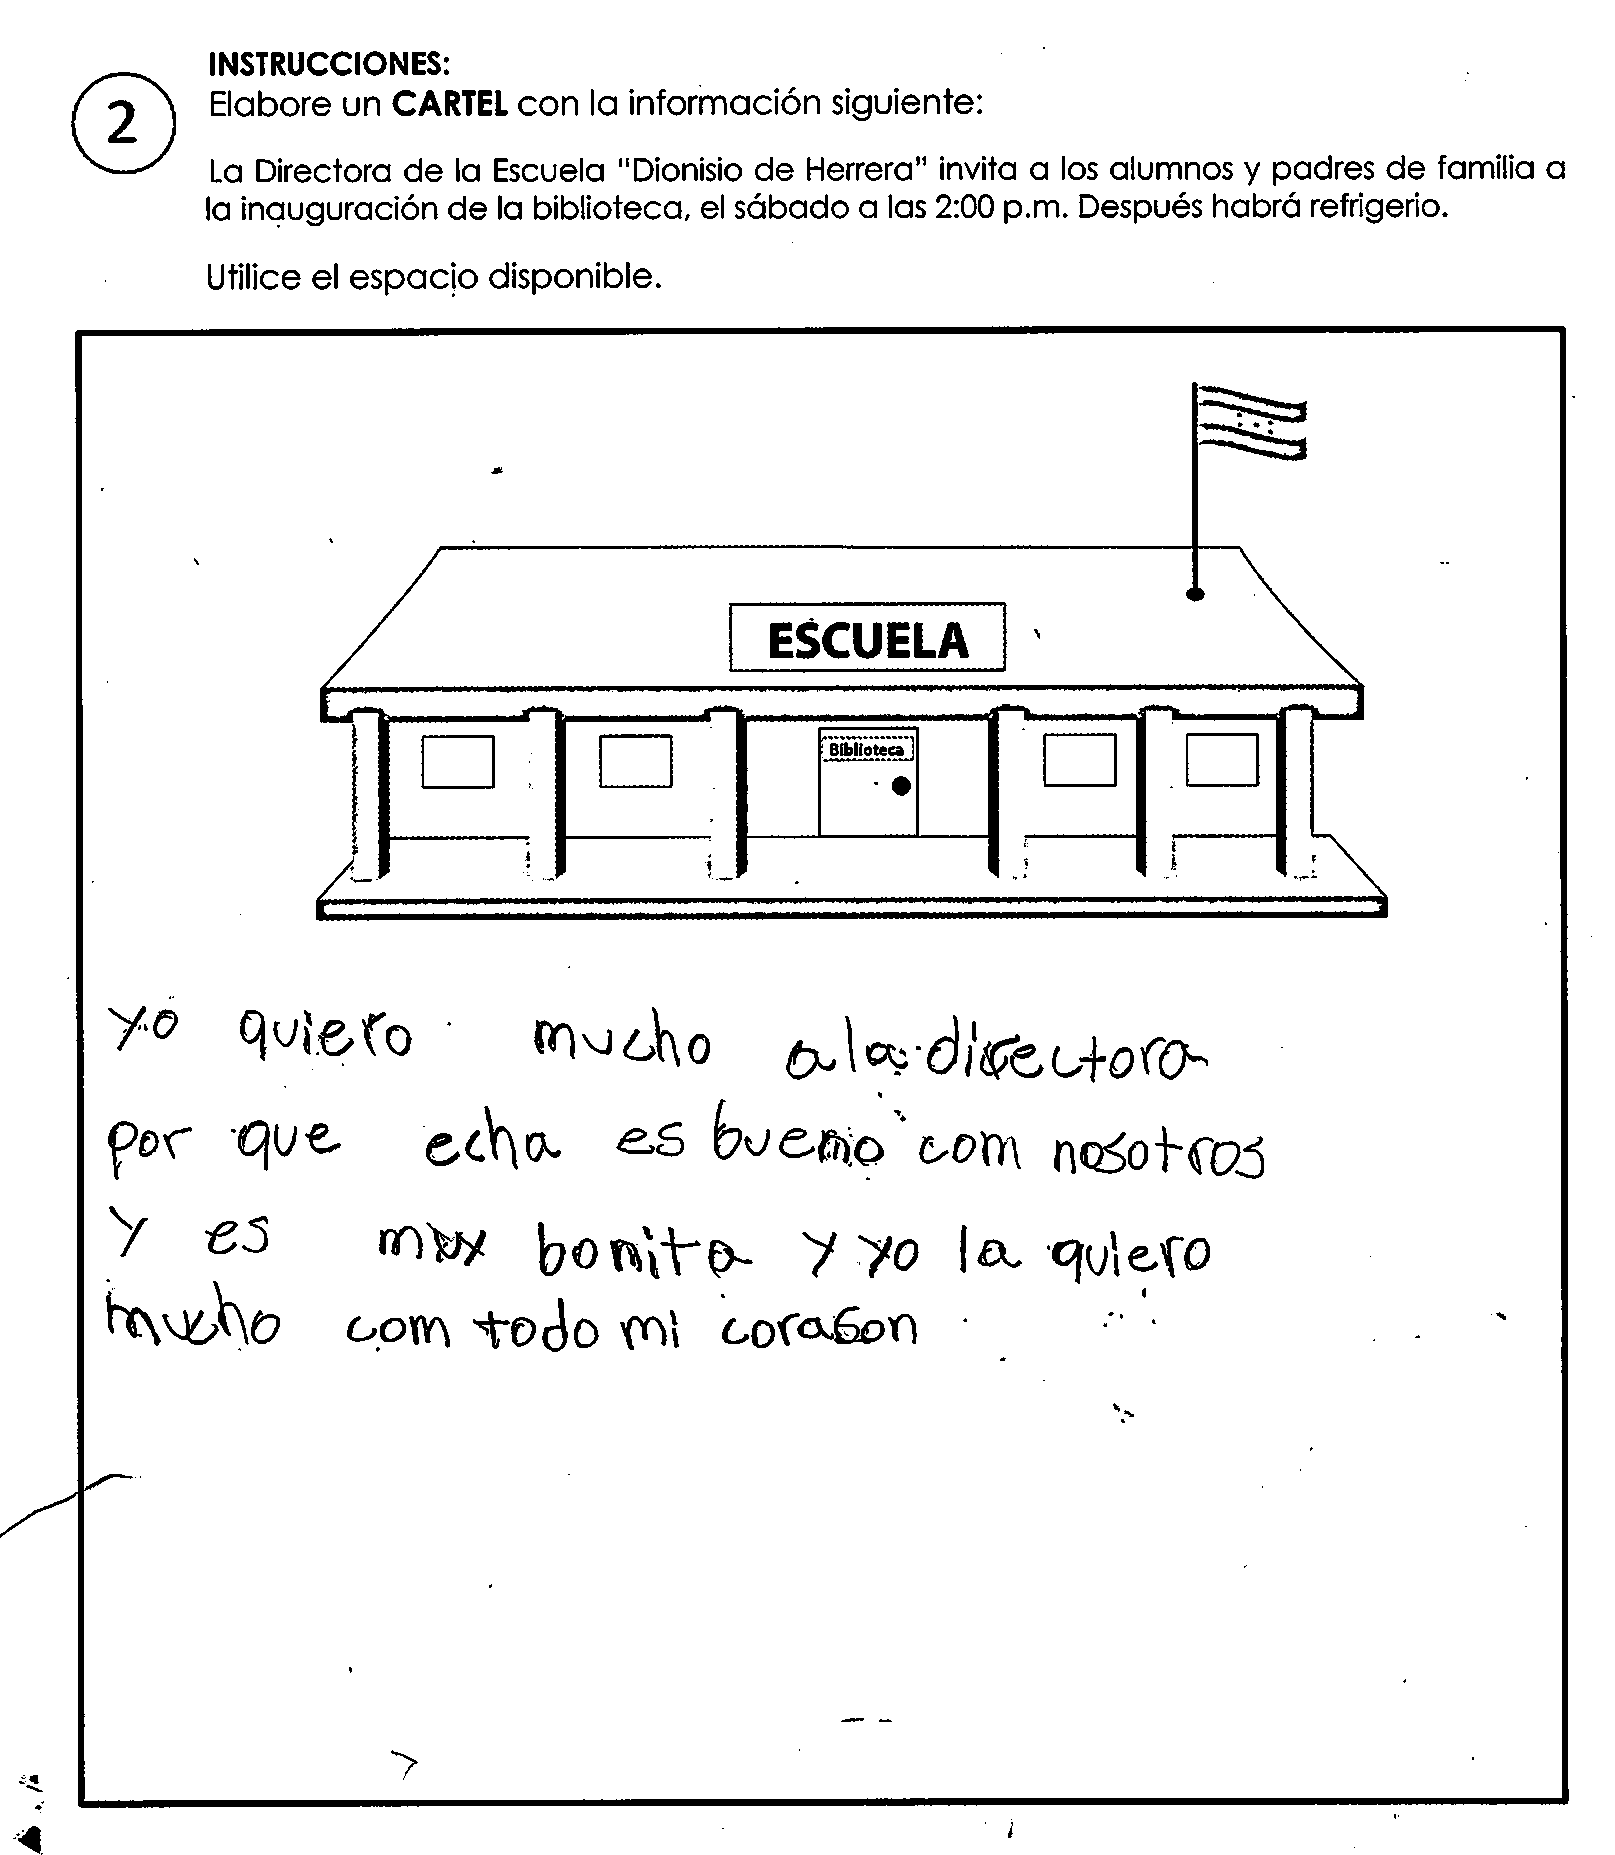 INSTRUCCIONES:
2
Elabore un CARTEL con la información siguiente:
La Directora de la Escuela "Dionisio de Herrera" invita a los alumnos y padres de familia a
la inauguración de la biblioteca, el sábado a las 2:00 p.m. Después habrá refrigerio.
Utilice el espacio disponible.
ESCUELA
Biblioteca
yo quiero mucho a la directora
por que echa es bueno com nosotros
y es muy bomita y yo la quiero
mucho com todo mi corason